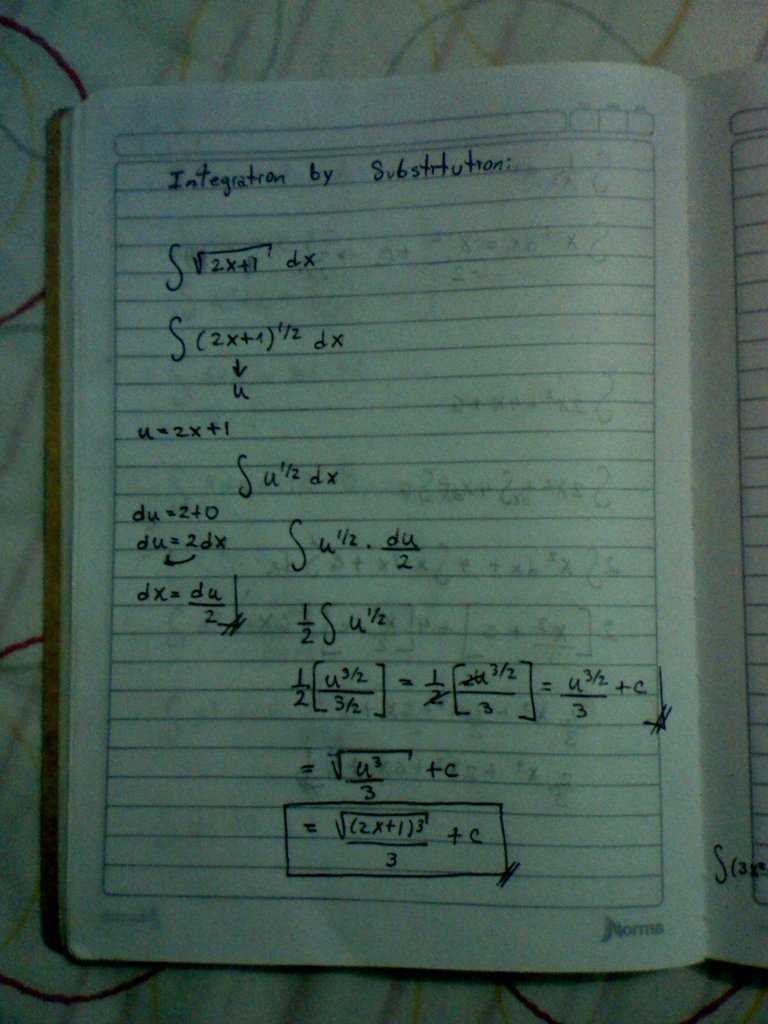 Integration by Substitution:
∫ √2x+1 dx
∫ (2x+1)^1/2 dx
↓
u
u = 2x+1
∫ u^1/2 dx
du = 2+0
du = 2dx
∫ u^1/2 . du/2
dx = du/2
1/2 ∫ u^1/2
1/2 [u^3/2 / 3/2] = 1/2 [2u^3/2 / 3] = u^3/2 / 3 + c
= √u^3 / 3 + c
= √(2x+1)^3 / 3 + c
∫(3x²
Norma